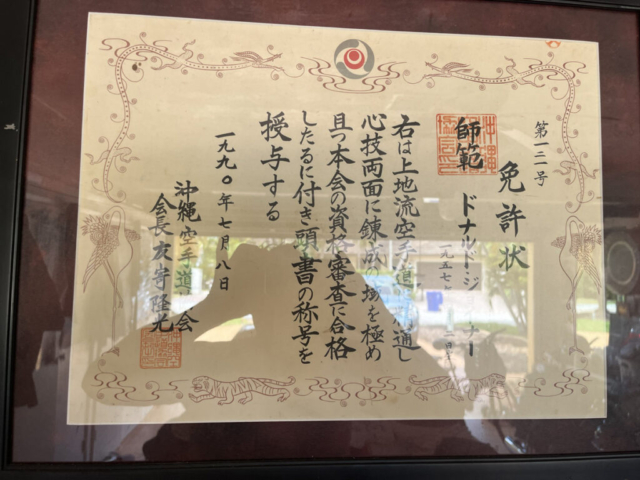 第一二一号
免許状
師範 ドナルド・ジ ナー
一九五七年
右は上地流空手道に 通し
心技両面に錬成の功を極め
且つ本会の資格審査に合格
したるに付き頭書の称号を
授与する
一九九〇年七月八日
沖縄空手道 会
会長 友寄隆光